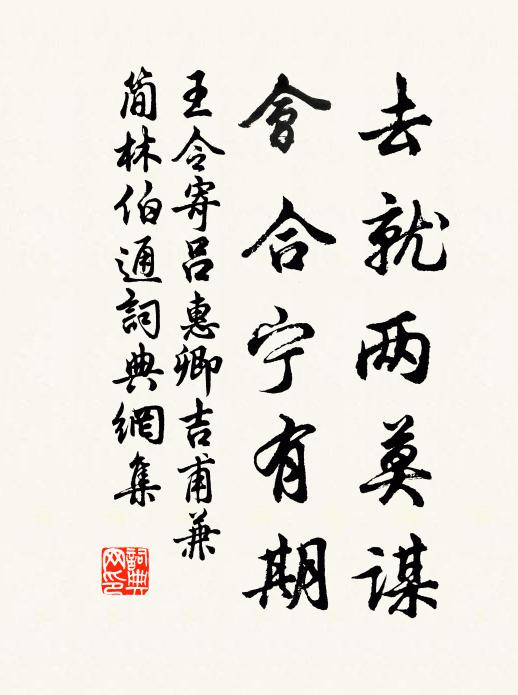 去就两莫谋
會合宁有期
王令寄吕惠卿吉甫兼
简林伯通詞典網集
詞典网印